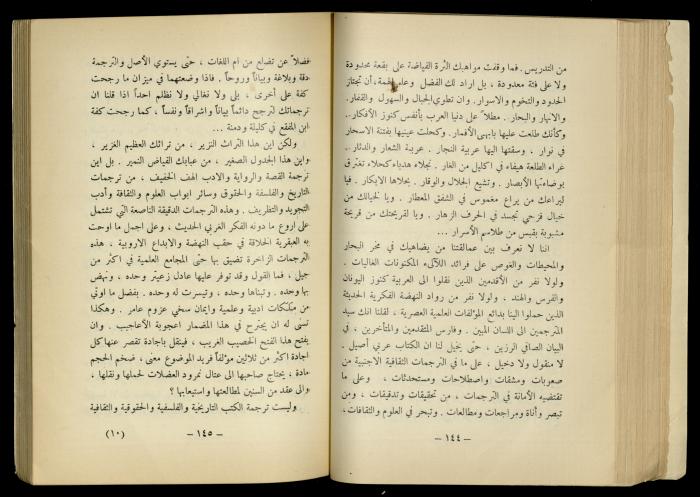 من التدريس . فما وقفت مواهبك الثرة الفياضة على بقعة محدودة
ولا على فئة معدودة ، بل اراد لك الفضل وعلو الهمة ، أن تجتاز
الحدود والتخوم والاسوار . وان تطوي الجبال والسهول والقفار .
والانهار والبحار . مطلاً على دنيا العرب بأنفس كنوز الأفكار ..
وكأنك طلعت عليها بأبهى الأقمار . وكحلت عينيها بفتنة الاسحار
في نوار . وسقتها اليها عربية النجار . عربية الشعار والدثار ..
غراء الطلعة هيفاء في اكليل من الغار . نجلاء هدباء كحلاء تغرق
بوضاءتها الأبصار . وتشيع الجلال والوقار . بحلاها الابكار . فيا
ليراعك من يراع مغموس في الشفق المعطار . ويا لخيالك من
خيال قزحي تجسد في الحرف الزهار . ويا لقريحتك من قريحة
مشبوبة بقبس من طلاسم الأسرار ...
اننا لا نعرف بين عمالقتنا من يضاهيك في مخر البحار
والمحيطات والغوص على فرائد اللآلىء المكنونات الغاليات .
ولولا نفر من الأقدمين الذين نقلوا الى العربية كنوز اليونان
والفرس والهند ، ولولا نفر من رواد النهضة الفكرية الحديثة
الذين حملوا الينا بدائع المؤلفات العلمية العصرية ، لقلنا انك سيد
المترجمين الى اللسان المبين . وفارس المتقدمين والمتأخرين ، في
البيان الصافي الرزين ، حتى يخيل لنا ان الكتاب عربي أصيل .
لا منقول ولا دخيل ، على ما في الترجمات الثقافية الاجنبية من
صعوبات ومشقات واصطلاحات ومستحدثات ، وعلى ما
تقتضيه الأمانة في الترجمات ، من تحقيقات وتدقيقات ، ومن
تبصر وأناة ومراجعات ومطالعات . وتبحر في العلوم والثقافات،
– ١٤٤ –
فضلاً عن تضلع من ام اللغات ، حتى يستوي الأصل والترجمة
دقة وبلاغة وبياناً وروحاً . فاذا وضعتهما في ميزان ما رجحت
كفة على أخرى ، بلى ولا نغالي ولا نظلم احداً اذا قلنا ان
ترجماتك لترجح دائماً بياناً واشراقاً ونفساً ، كما رجحت كفة
ابن المقفع في كليلة ودمنة ...
ولكن اين هذا التراث النزير ، من تراثك العظيم الغزير ،
واين هذا الجدول الصغير ، من عبابك الفياض النمير . بل اين
ترجمة القصة والرواية والادب الهف الخفيف ، من ترجمات
التاريخ والفلسفة والحقوق وسائر ابواب العلوم والثقافة وأدب
التجويد والتظريف . وهذه الترجمات الدقيقة الناصعة التي تشتمل
على اروع ما دونه الفكر الغربي الحديث ، وعلى اجمل ما اوحت
به العبقرية الخلاقة في حقب النهضة والابداع الاروبية ، هذه
الترجمات الزاخرة تضيق بها حتى المجامع العلمية في اكثر من
جيل ، فما القول وقد توفر عليها عادل زعيتر وحده ، ونهض
بها وحده . وتبناها وحده ، وتيسرت له وحده . بفضل ما اوتي
من ملكات ادبية وعلمية وايمان سخي عزوم عامر . وهكذا
تسنى له ان يجترح في هذا المضمار اعجوبة الأعاجيب . وان
يفتح هذا الفتح الخصيب الغريب ، فينقل باجادة تقصر عنها كل
اجادة اكثر من ثلاثين مؤلفاً فريد الموضوع معنى ، ضخم الحجم
مادة ، يحتاج صاحبها الى عتال نمرود العضلات لحملها ونقلها ،
والى عقد من السنين لمطالعتها واستيعابها ؟
وليست ترجمة الكتب التاريخية والفلسفية والحقوقية والثقافية
– ١٤٥ –
(١٠)